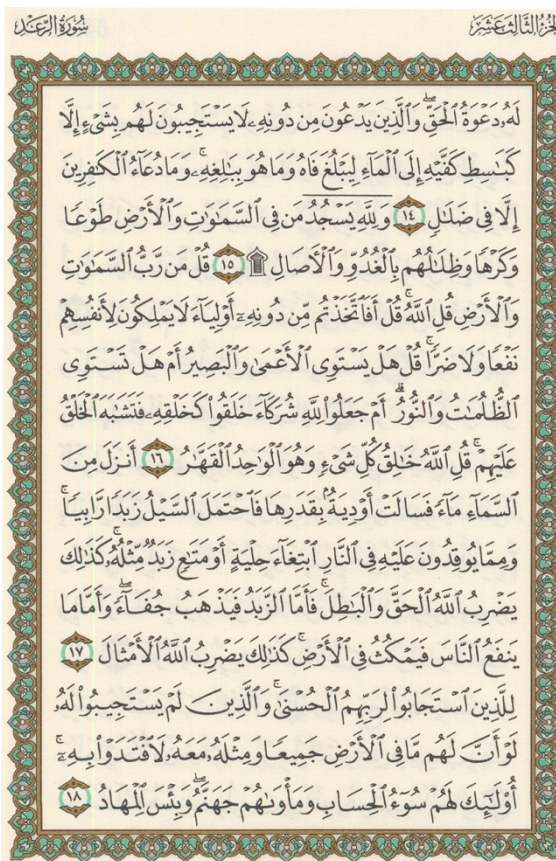 سُورَةُ الرَّعْدِ
الجُزْءُ الثَّالِثَ عَشَرَ
لَهُۥ دَعْوَةُ ٱلْحَقِّۖ وَٱلَّذِينَ يَدْعُونَ مِن دُونِهِۦ لَا يَسْتَجِيبُونَ لَهُم بِشَىْءٍ إِلَّا
كَبَٰسِطِ كَفَّيْهِ إِلَى ٱلْمَآءِ لِيَبْلُغَ فَاهُ وَمَا هُوَ بِبَٰلِغِهِۦۚ وَمَا دُعَآءُ ٱلْكَٰفِرِينَ
إِلَّا فِى ضَلَٰلٍ ١٤ وَلِلَّهِ يَسْجُدُ مَن فِى ٱلسَّمَٰوَٰتِ وَٱلْأَرْضِ طَوْعًا
وَكَرْهًا وَظِلَٰلُهُم بِٱلْغُدُوِّ وَٱلْأَصَالِ ۩ ١٥ قُلْ مَن رَّبُّ ٱلسَّمَٰوَٰتِ
وَٱلْأَرْضِ قُلِ ٱللَّهُۚ قُلْ أَفَٱتَّخَذْتُم مِّن دُونِهِۦٓ أَوْلِيَآءَ لَا يَمْلِكُونَ لِأَنفُسِهِمْ
نَفْعًا وَلَا ضَرًّاۚ قُلْ هَلْ يَسْتَوِى ٱلْأَعْمَىٰ وَٱلْبَصِيرُ أَمْ هَلْ تَسْتَوِى
ٱلظُّلُمَٰتُ وَٱلنُّورُۗ أَمْ جَعَلُوا۟ لِلَّهِ شُرَكَآءَ خَلَقُوا۟ كَخَلْقِهِۦ فَتَشَٰبَهَ ٱلْخَلْقُ
عَلَيْهِمْۚ قُلِ ٱللَّهُ خَٰلِقُ كُلِّ شَىْءٍ وَهُوَ ٱلْوَٰحِدُ ٱلْقَهَّٰرُ ١٦ أَنزَلَ مِنَ
ٱلسَّمَآءِ مَآءً فَسَالَتْ أَوْدِيَةٌۢ بِقَدَرِهَا فَٱحْتَمَلَ ٱلسَّيْلُ زَبَدًا رَّابِيًاۚ
وَمِمَّا يُوقِدُونَ عَلَيْهِ فِى ٱلنَّارِ ٱبْتِغَآءَ حِلْيَةٍ أَوْ مَتَٰعٍ زَبَدٌ مِّثْلُهُۥۚ كَذَٰلِكَ
يَضْرِبُ ٱللَّهُ ٱلْحَقَّ وَٱلْبَٰطِلَۚ فَأَمَّا ٱلزَّبَدُ فَيَذْهَبُ جُفَآءًۖ وَأَمَّا مَا
يَنفَعُ ٱلنَّاسَ فَيَمْكُثُ فِى ٱلْأَرْضِۚ كَذَٰلِكَ يَضْرِبُ ٱللَّهُ ٱلْأَمْثَالَ ١٧
لِلَّذِينَ ٱسْتَجَابُوا۟ لِرَبِّهِمُ ٱلْحُسْنَىٰۚ وَٱلَّذِينَ لَمْ يَسْتَجِيبُوا۟ لَهُۥ
لَوْ أَنَّ لَهُم مَّا فِى ٱلْأَرْضِ جَمِيعًا وَمِثْلَهُۥ مَعَهُۥ لَٱفْتَدَوْا۟ بِهِۦٓۚ
أُو۟لَٰٓئِكَ لَهُمْ سُوٓءُ ٱلْحِسَابِ وَمَأْوَىٰهُمْ جَهَنَّمُۖ وَبِئْسَ ٱلْمِهَادُ ١٨